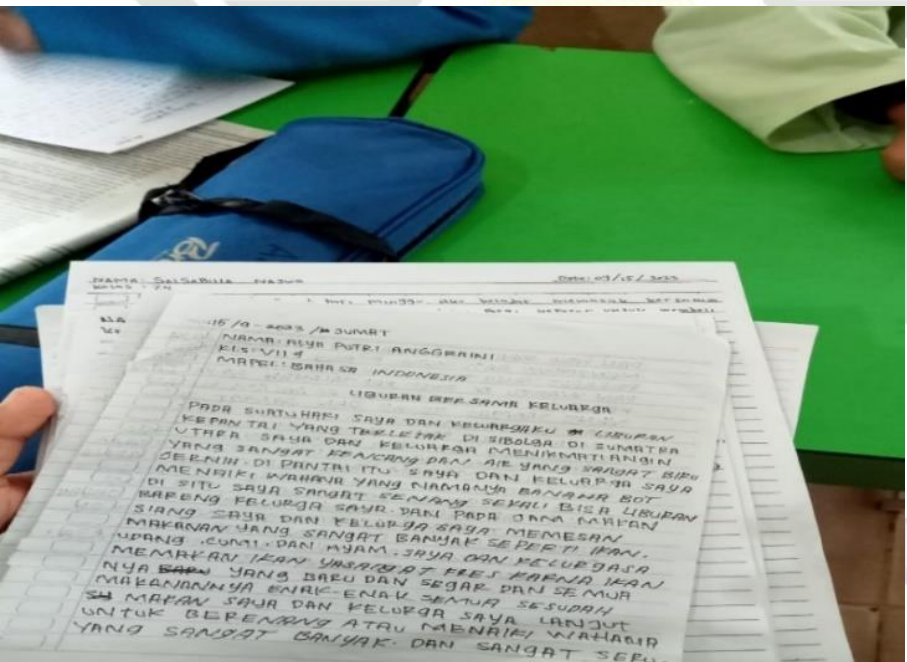 NAMA: SalSaBilla NAJWA
Date: 09/15/2023
15/9-2023/JUMAT
NAMA: ALYA PUTRI ANGGRAINI
KLS: VII 9
MAPEL: BAHASA INDONESIA
LIBURAN BERSAMA KELUARGA
PADA SUATU HARI SAYA DAN KELUARGAKU LIBURAN
KEPANTAI YANG TERLETAK DI SIBOLGA DI SUMATRA
UTARA SAYA DAN KELUARGA MENIKMATI ANGIN
YANG SANGAT KENCANG DAN AIR YANG SANGAT BIRU
JERNIH. DI PANTAI ITU SAYA DAN KELUARGA SAYA
MENAIKI WAHANA YANG NAMANYA BANANA BOT
DI SITU SAYA SANGAT SENANG SEKALI BISA LIBURAN
BARENG KELURGA SAYA. DAN PADA JAM MAKAN
SIANG SAYA DAN KELURGA SAYA MEMESAN
MAKANAN YANG SANGAT BANYAK SEPERTI IKAN.
UDANG. CUMI. DAN AYAM. SAYA DAN KELURGASA
MEMAKAN IKAN YASANGAT FRES KARNA IKAN
NYA BARU YANG BARU DAN SEGAR DAN SEMUA
MAKANANNYA ENAK-ENAK SEMUA SESUDAH
MAKAN SAYA DAN KELURGA SAYA LANJUT
UNTUK BERENANG ATAU MENAIKI WAHANA
YANG SANGAT BANYAK. DAN SANGAT SERU.